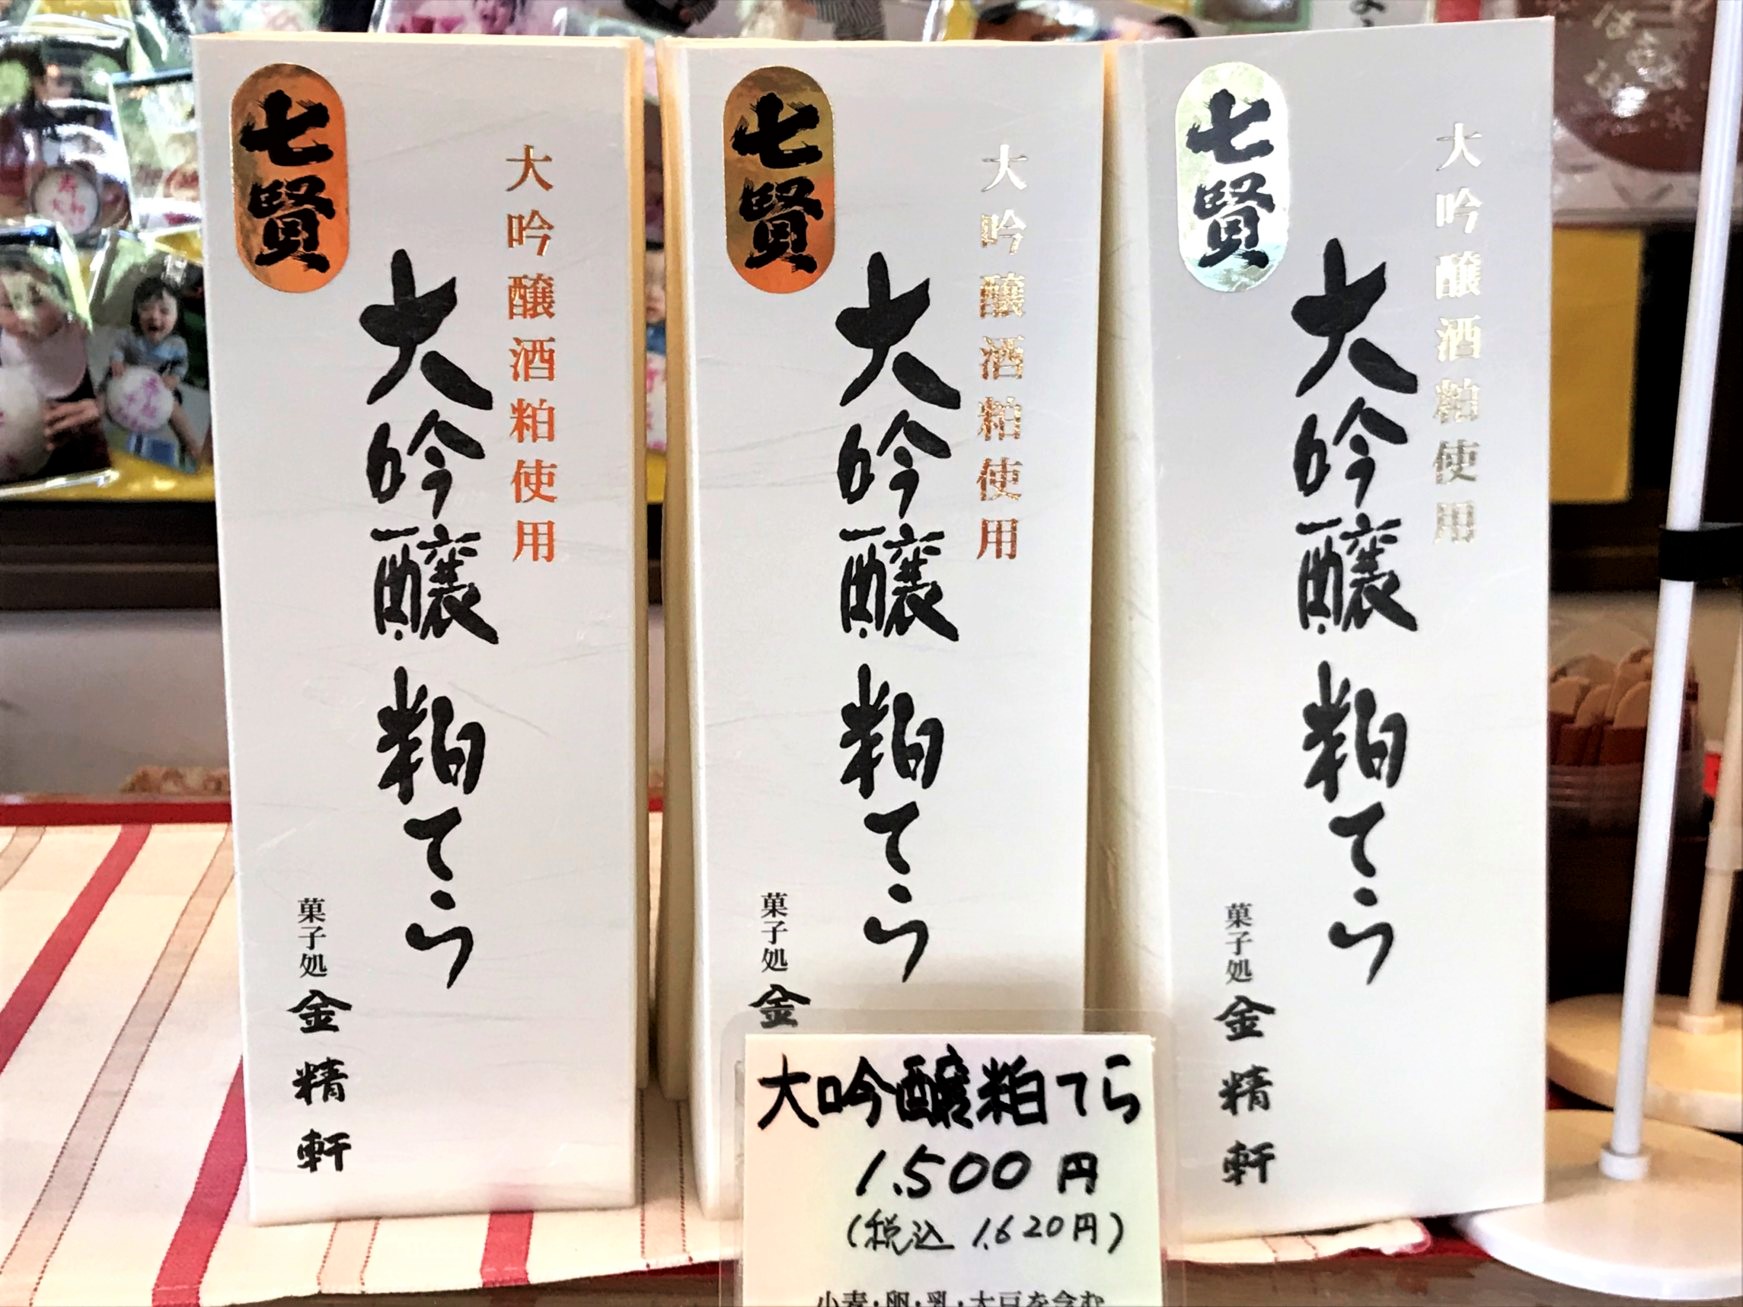 七賢
大吟醸酒粕使用
大吟醸粕てら
菓子処 金精軒
七賢
大吟醸酒粕使用
大吟醸粕てら
菓子処 金
七賢
大吟醸酒粕使用
大吟醸粕てら
菓子処 金精軒
大吟醸粕てら
1,500円
(税込 1,620円)
小麦・卵・乳・大豆を含む